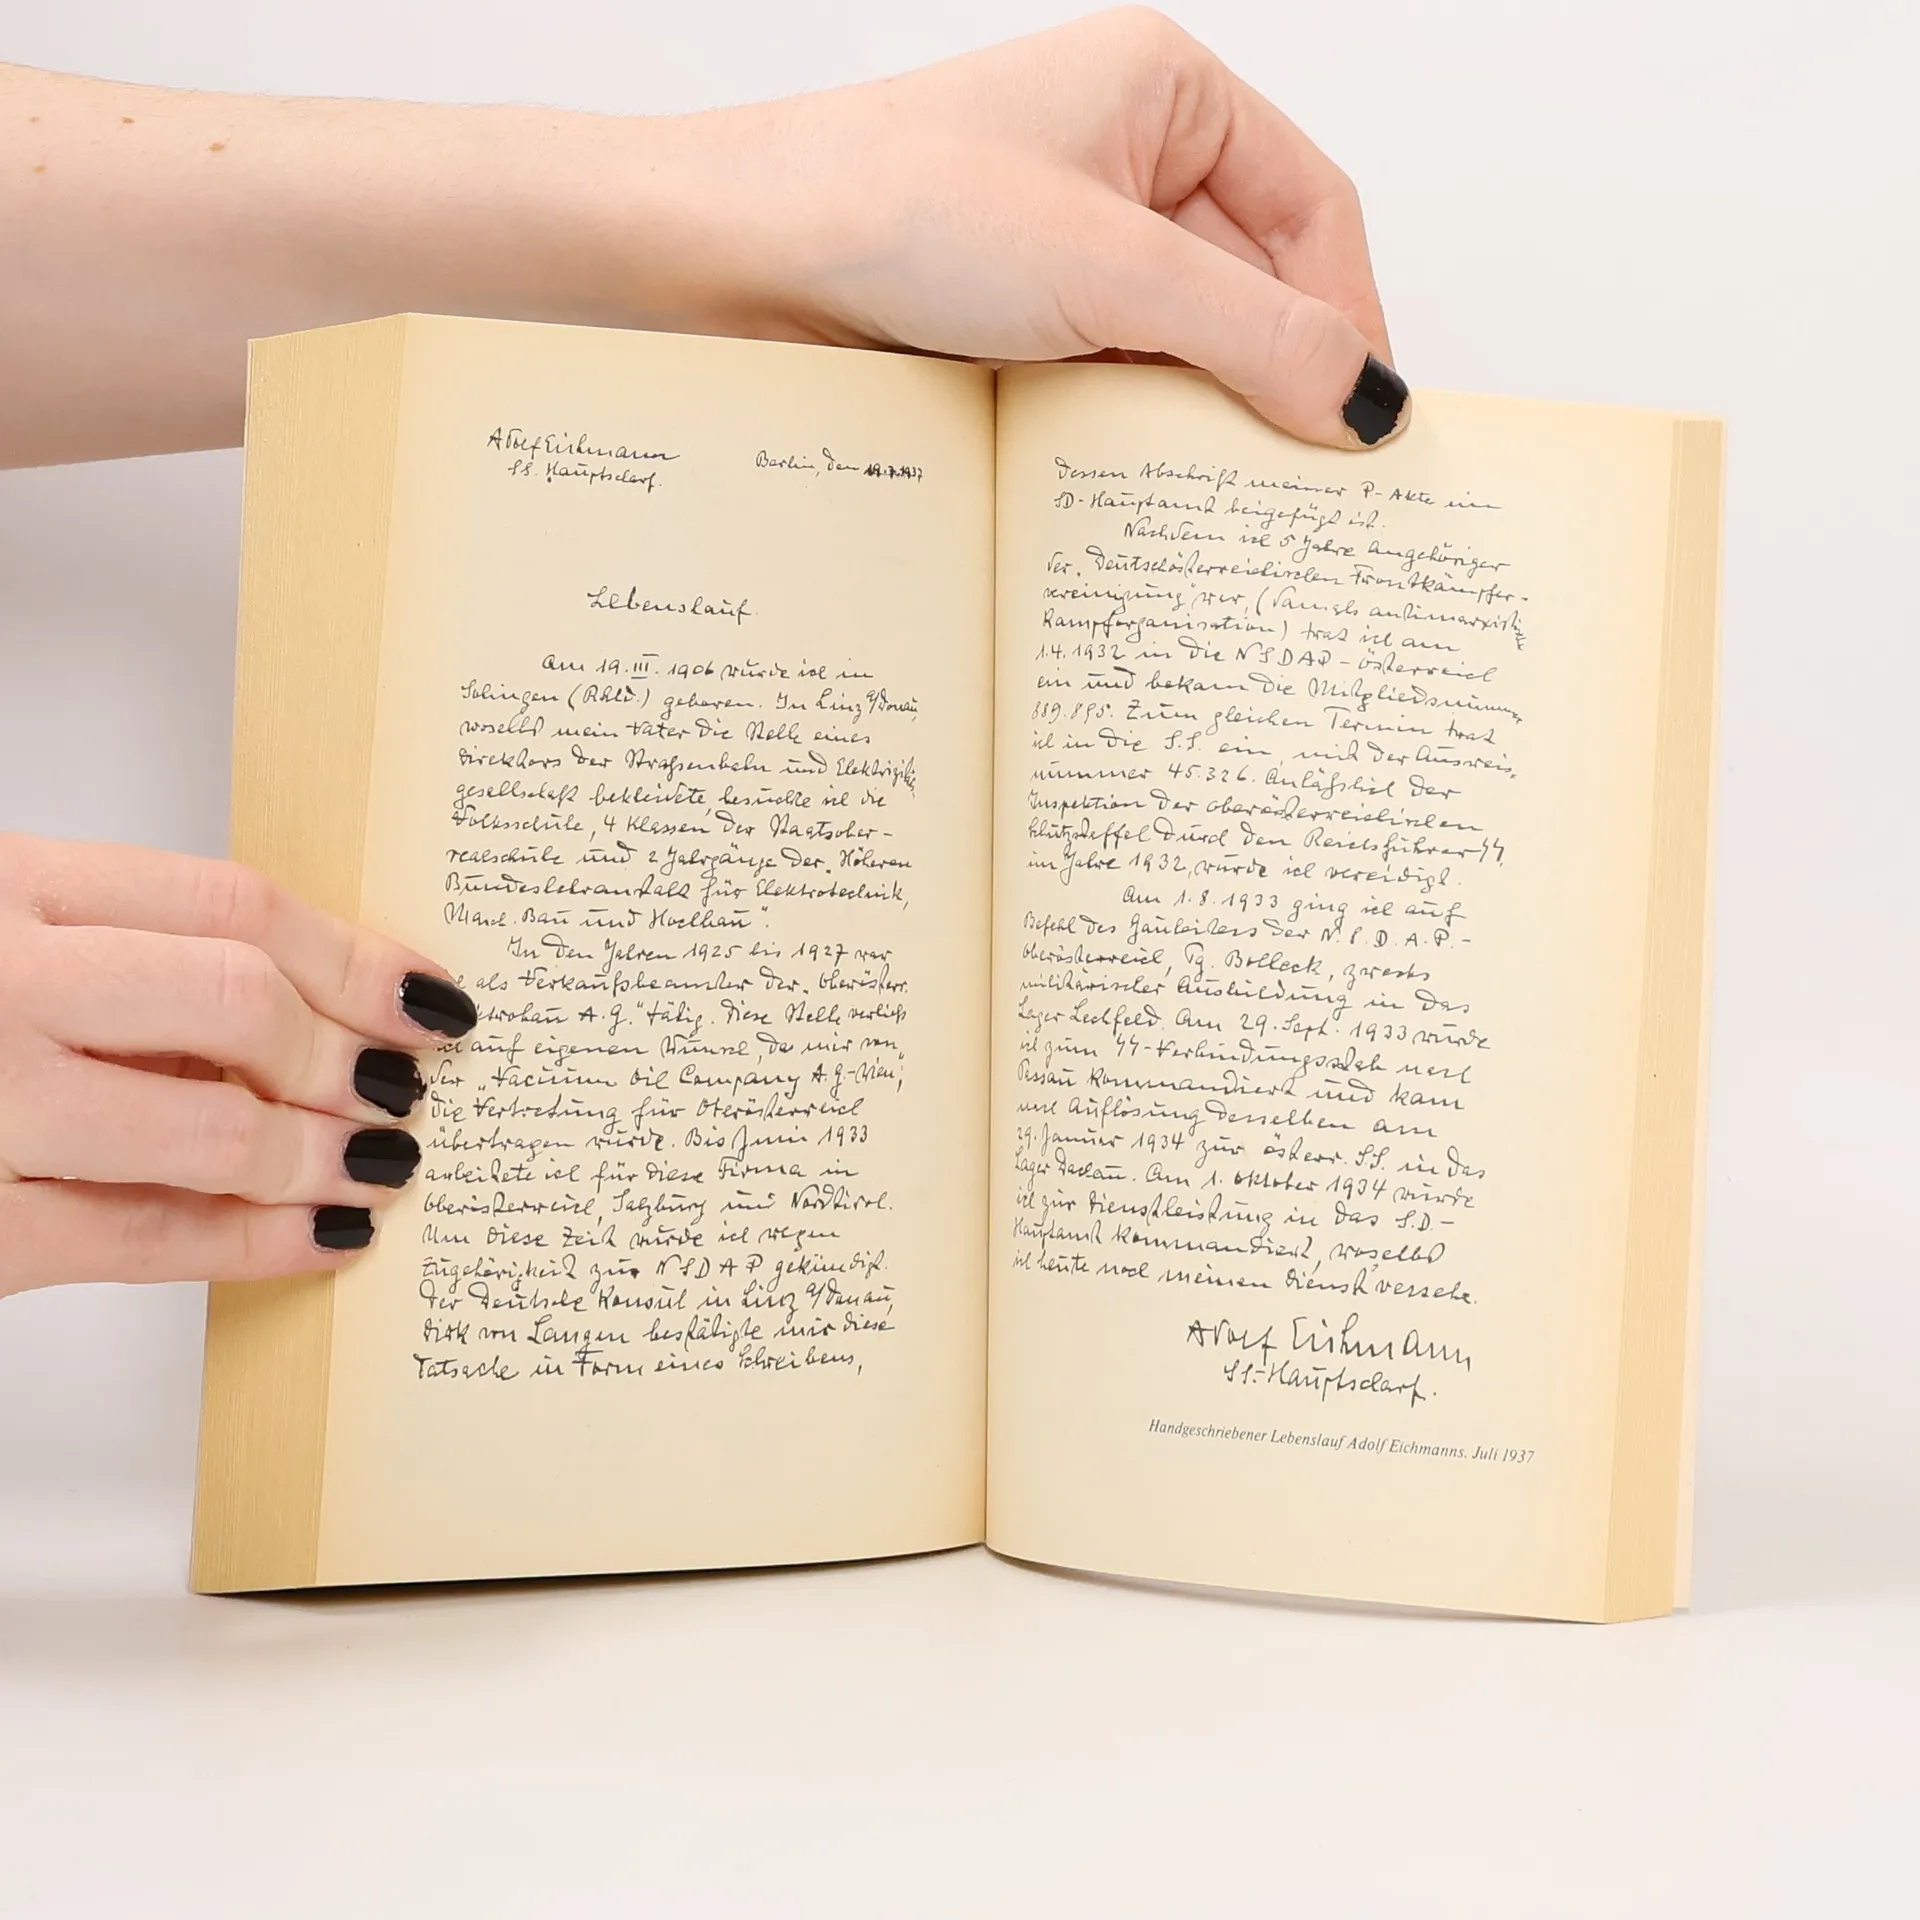 Adolf Eichmann
SS. Hauptscharf.
Berlin, den 19.7.1937
Lebenslauf.
Am 19. III. 1906 wurde ich in
Solingen (Rhld.) geboren. In Linz a/Donau,
woselbst mein Vater die Stelle eines
Direktors der Strassenbahn und Elektrizitäts-
gesellschaft bekleidete, besuchte ich die
Volksschule, 4 Klassen der Staatsober-
realschule und 2 Jahrgänge der „Höheren
Bundeslehranstalt für Elektrotechnik,
Masch. Bau und Hochbau".
In den Jahren 1925 bis 1927 war
als Verkaufsbeamter der „Oberösterr.
ktrobau A.G." tätig. Diese Stelle verließ
ich auf eigenen Wunsch, da mir von
der „Vacuum Oil Company A.G.-Wien",
die Vertretung für Oberösterreich
übertragen wurde. Bis Juni 1933
arbeitete ich für diese Firma in
Oberösterreich, Salzburg und Nordtirol.
Um diese Zeit wurde ich wegen
Zugehörigkeit zur NSDAP gekündigt.
Der Deutsche Konsul in Linz a/Donau,
Dirk von Langen bestätigte mir diese
Tatsache in Form eines Schreibens,
dessen Abschrift meiner P-Akte im
SD-Hauptamt beigefügt ist.
Nachdem ich 5 Jahre Angehöriger
der „Deutschösterreichischen Frontkämpfer-
vereinigung" war, (damals antimarxistische
Kampforganisation) trat ich am
1.4.1932 in die NSDAP-Österreich
ein und bekam die Mitgliedsnummer
889.895. Zum gleichen Termin trat
ich in die S.S. ein, mit der Ausweis-
nummer 45.326. Anläßlich der
Inspektion der oberösterreichischen
Schutzstaffel durch den Reichsführer-SS,
im Jahre 1932, wurde ich vereidigt.
Am 1.8.1933 ging ich auf
Befehl des Gauleiters der N.S.D.A.P.-
Oberösterreich, Pg. Bolleck, zwecks
militärischer Ausbildung in das
Lager Lechfeld. Am 29. Sept. 1933 wurde
ich zum SS-Verbindungsstab nach
Passau kommandiert und kam
nach Auflösung desselben am
29. Januar 1934 zur österr. SS. in das
Lager Dachau. Am 1. Oktober 1934 wurde
ich zur Dienstleistung in das S.D.-
Hauptamt kommandiert, woselbst
ich heute noch meinen Dienst versehe.
Adolf Eichmann
SS.-Hauptscharf.
Handgeschriebener Lebenslauf Adolf Eichmanns, Juli 1937